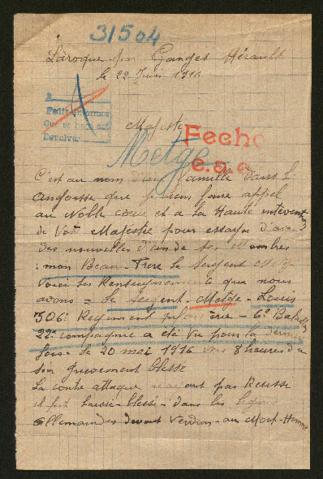 31504
Laroque par Ganges Hérault
le 22 Juin 1916
Majesté
Fecho
Metge
C'est au nom d'une famille dans l'
angoisse que je viens faire appel
au Noble cœur et a la Haute
de Votre Majesté pour essayer d'avoir
des nouvelles d'un de ses Membres
mon Beau-Frère le Sergent
Voici les Renseignements que nous
avons = Le Sergent - Metge - Louis
306e Regiment - 6e
22e compagnie a été vu pour la
fois - le 20 mai 1916 vers 8 heures du
soir grièvement blessé
La contre attaque ayant pas Reussi
il fut laissé - blessé - dans les lignes
Allemandes devant Verdun - au Mort-Homme